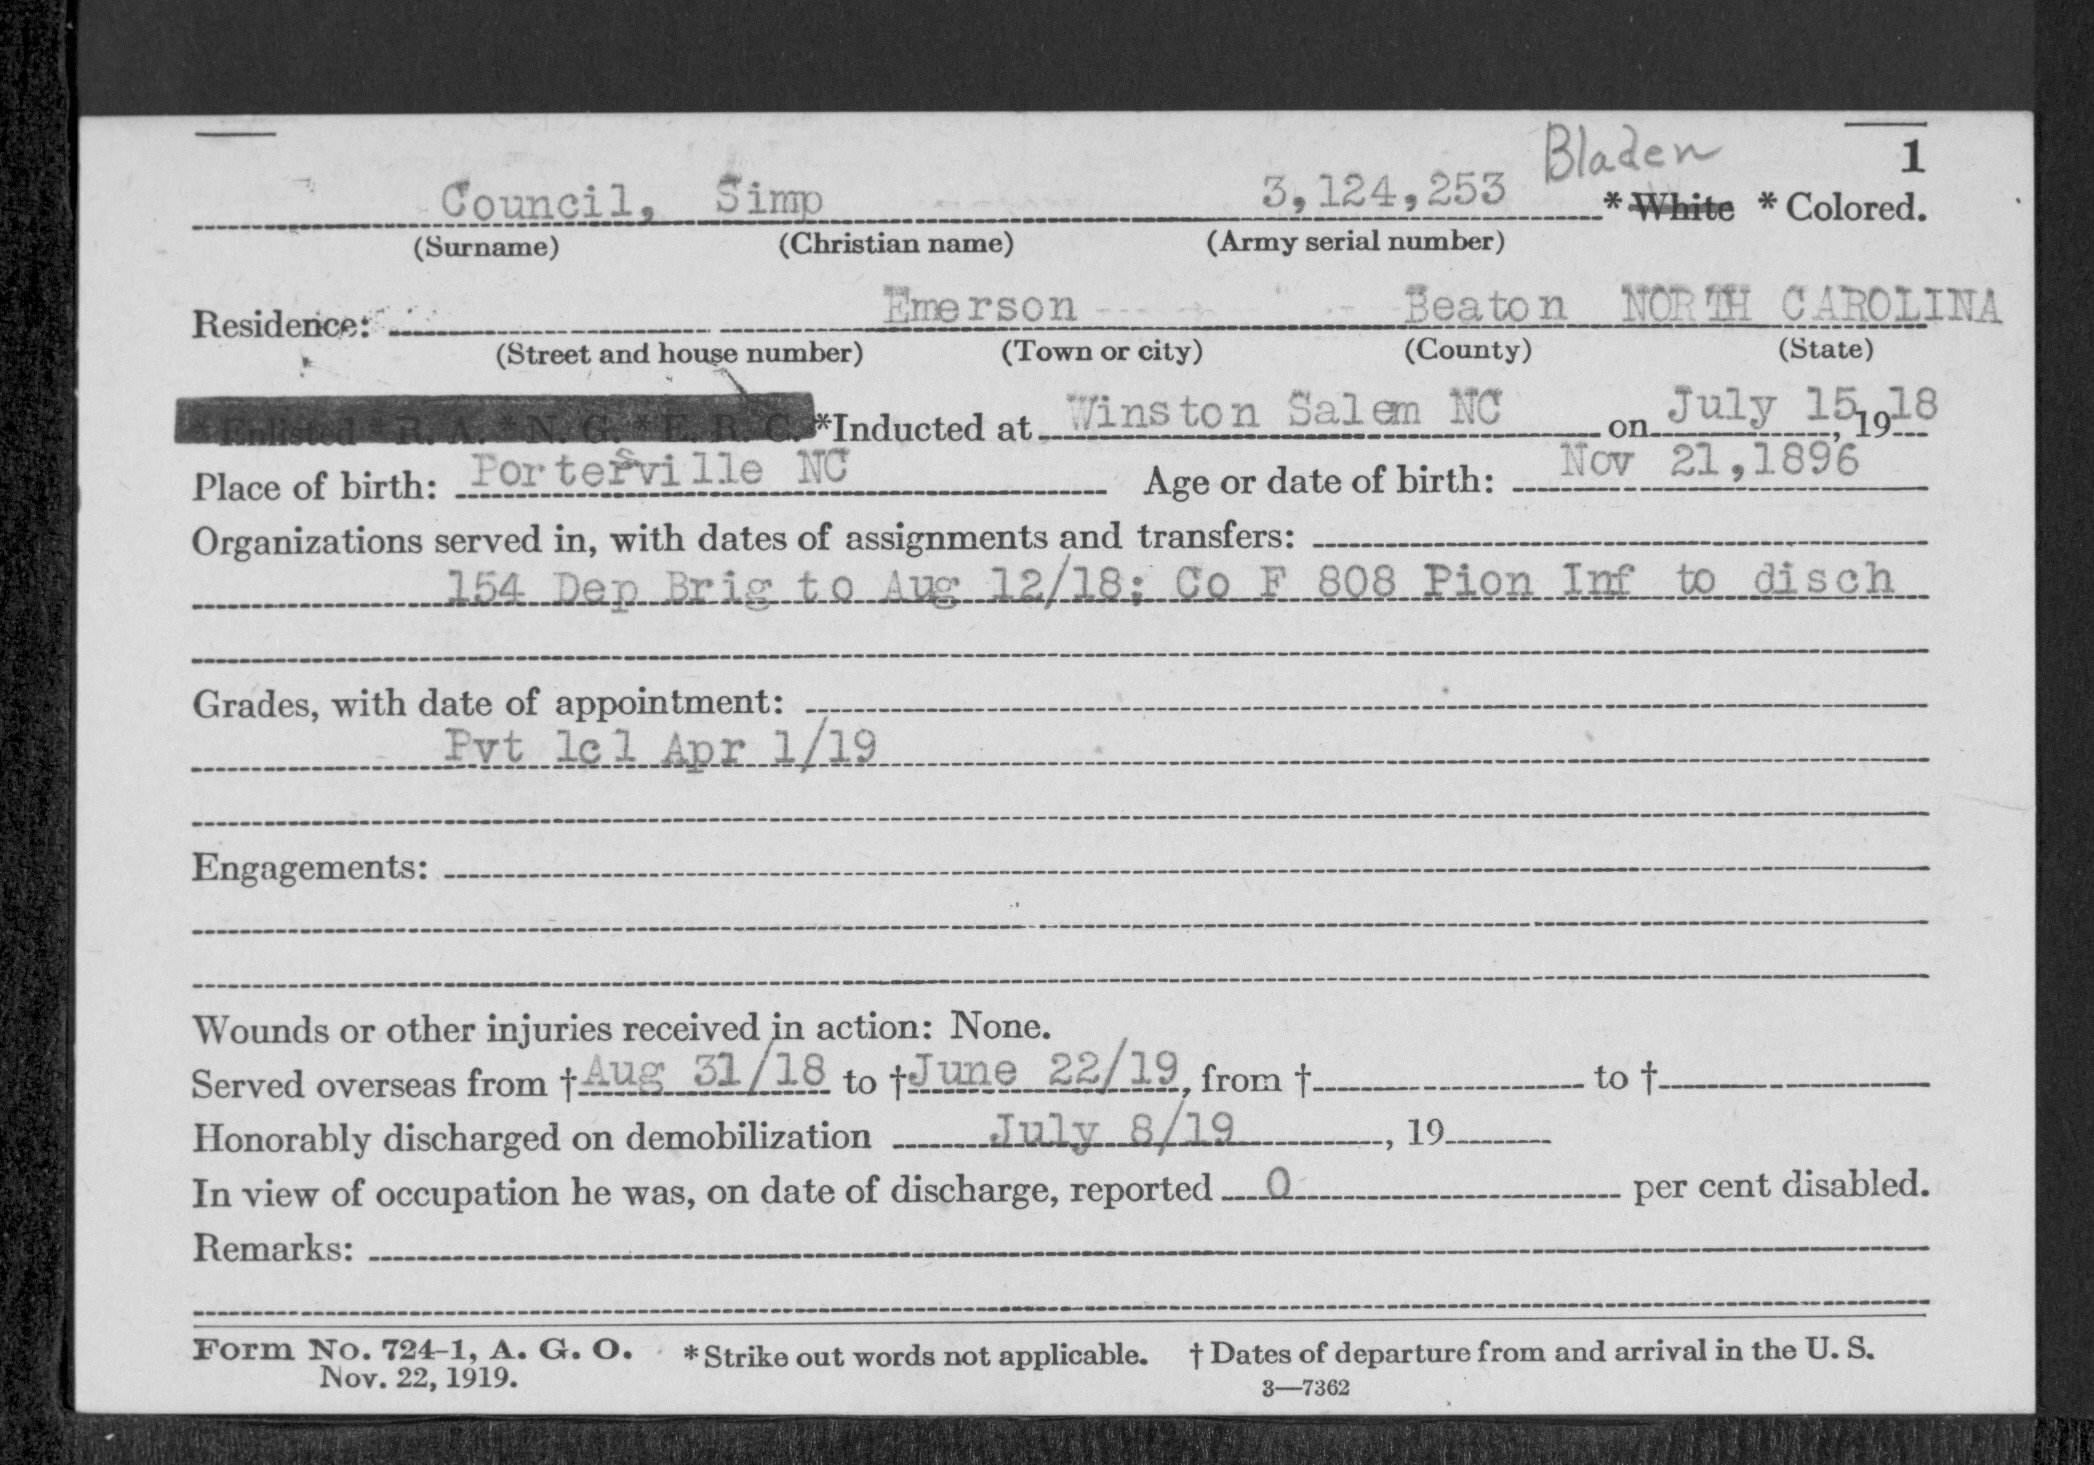 Bladen
1
Council, Simp 3,124,253 * White * Colored.
(Surname) (Christian name) (Army serial number)
Residence: Emerson Beaton NORTH CAROLINA
(Street and house number) (Town or city) (County) (State)
* Enlisted * R. A. * N. G. * E. R. C. *Inducted at Winston Salem NC on July 15, 1918
Place of birth: Portersville NC Age or date of birth: Nov 21,1896
Organizations served in, with dates of assignments and transfers:
154 Dep Brig to Aug 12/18; Co F 808 Pion Inf to disch
Grades, with date of appointment:
Pvt 1cl Apr 1/19
Engagements:
Wounds or other injuries received in action: None.
Served overseas from † Aug 31/18 to † June 22/19, from † to †
Honorably discharged on demobilization July 8/19, 19
In view of occupation he was, on date of discharge, reported 0 per cent disabled.
Remarks:
Form No. 724-1, A. G. O. * Strike out words not applicable. † Dates of departure from and arrival in the U. S.
Nov. 22, 1919. 3—7362